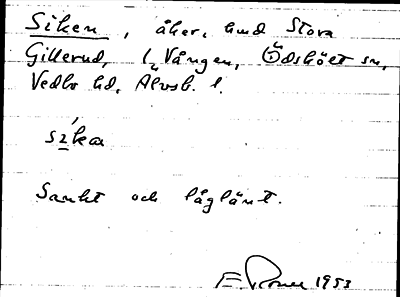 Siken, åker, hmd Stora
Gillerud, l. Vången, Ödskölt sn,
Vedbo hd, Älvsb. l.
sika
Sankt och låglänt.
E. 1953